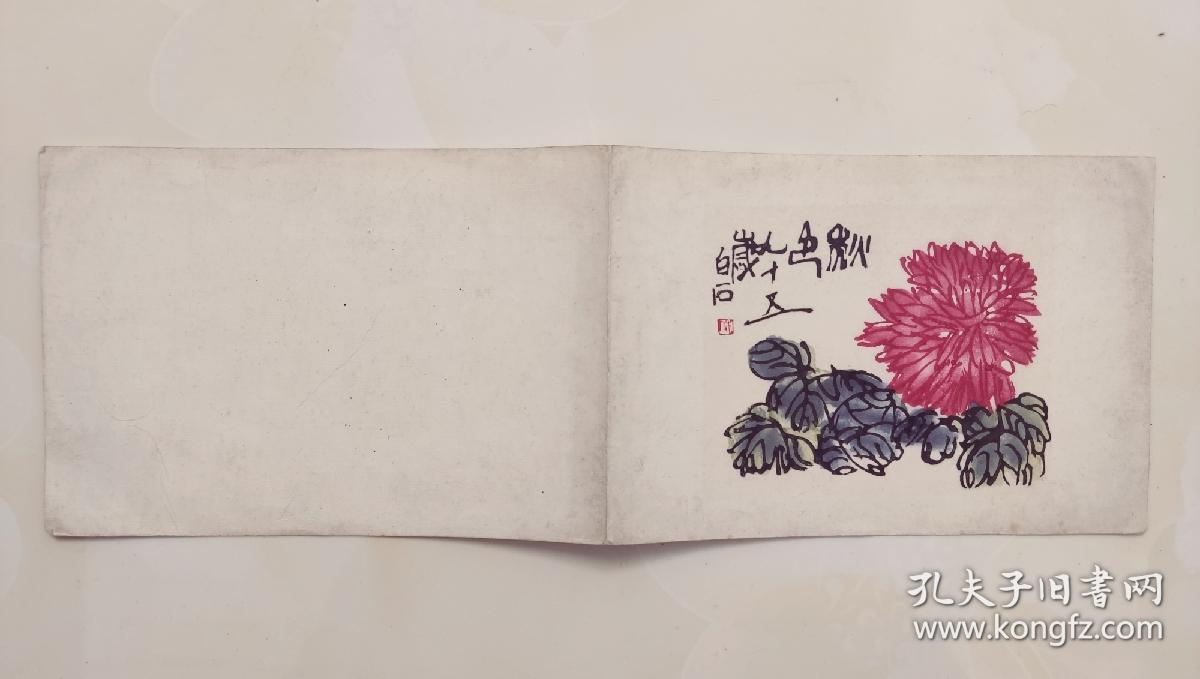 秋色
九十五
歲
白石
孔夫子旧书网
www.kongfz.com